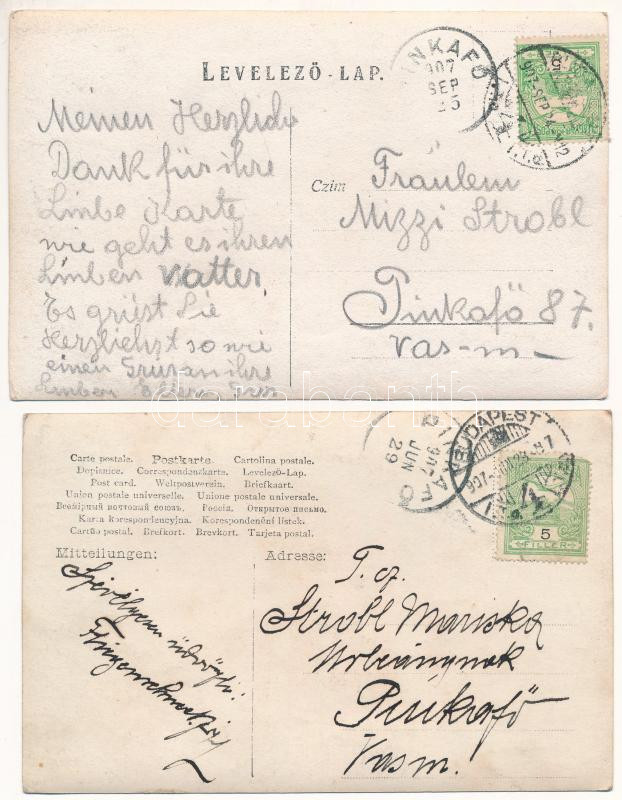 LEVELEZŐ-LAP.
PINKAFŐ
907
SEP
25
Meinen Herzlich
Dank für ihre
Linbe Karte
wie geht es ihren
Linben Vatter
Es grüst Sie
Herzliehst sowie
einen Grus an ihre
Linben Eltern
Czim
Fräulein
Mizzi Strobl
Pinkafő 87.
Vas-m-
darabanth
Carte postale. Postkarte. Cartolina postale.
Dopisnice. Correspondenzkarte. Levelező-Lap.
Post card. Weltpostverein. Briefkaart.
Union postale universelle. Unione postale universale.
Всемірный почтовый союзъ. Россія. Открытое письмо.
Karta korespondencyjna. Korespondenční lístek.
Cartão postal. Brefkort. Brevkort. Tarjeta postal.
Mitteilungen:
Adresse:
BUDAPEST
907
JUN
29
5
FILLER
Szivélyesen üdvözli
T. cz.
Strobl Mariska
Urleánynak
Pinkafő
Vasm.